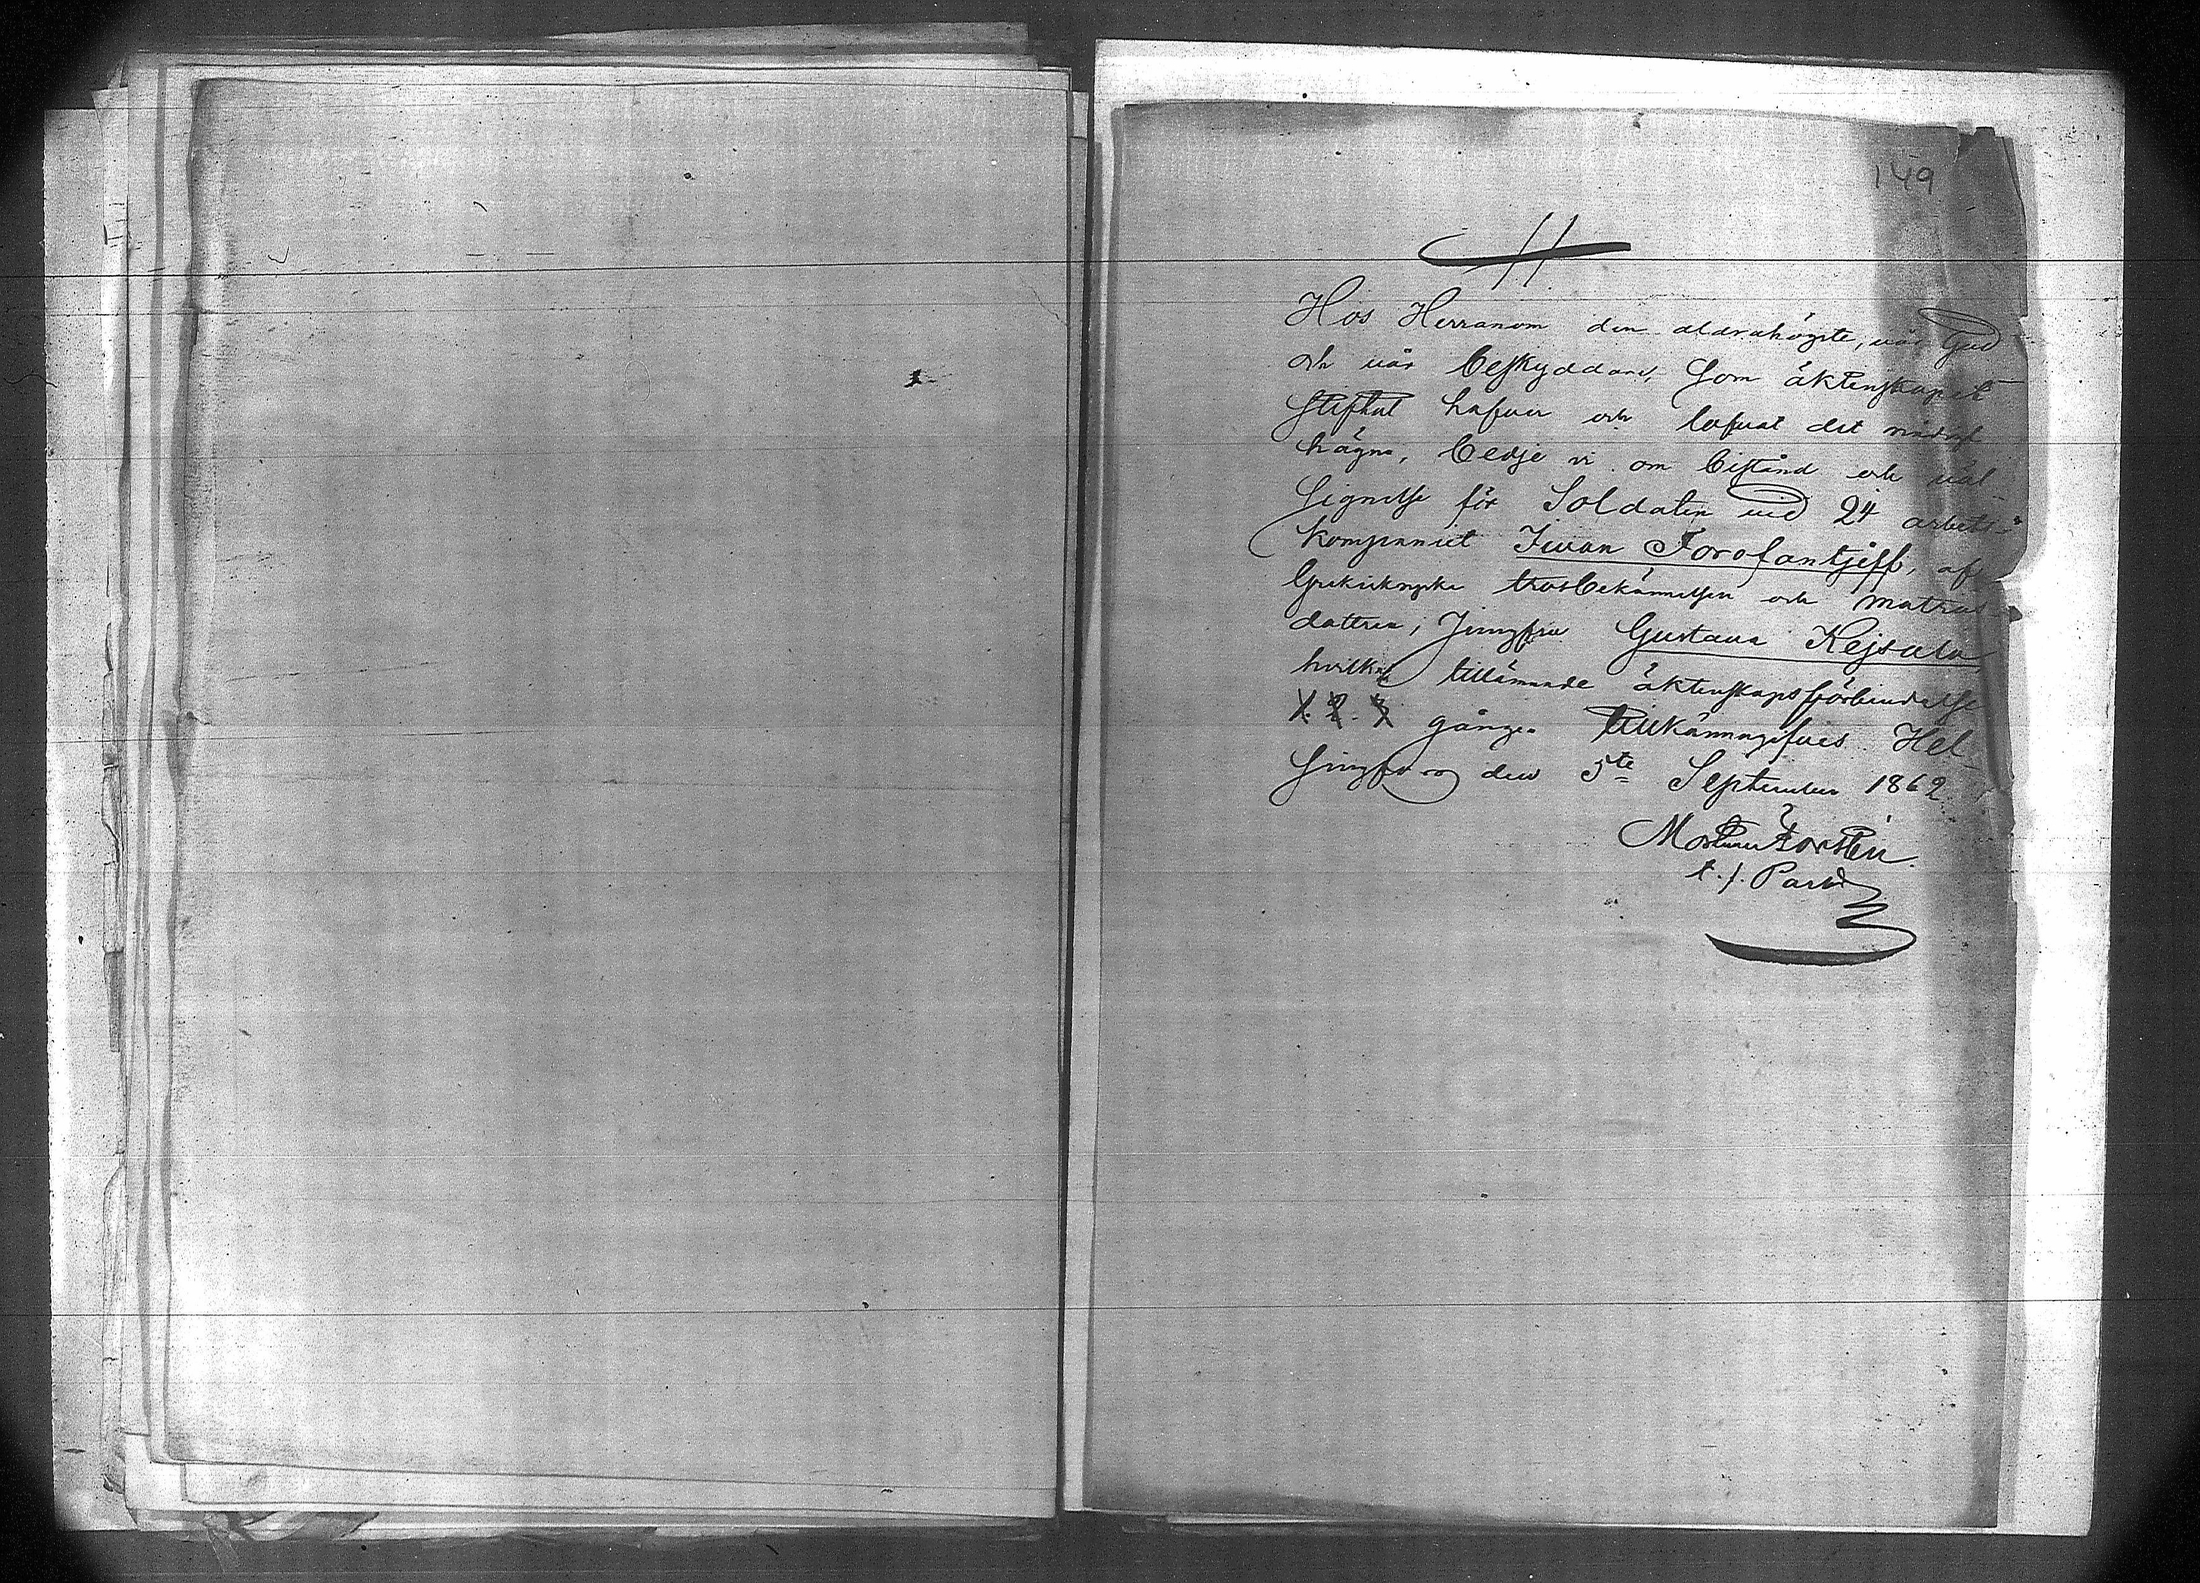 149
Hos Herranom den aldrahögste, vår Gud
och vår beskyddare, som äktenskapet
stiftat hafver och lofvat det
hägna, bedje vi om bistånd och väl-
signelse för Soldaten vid 24 arbets-
kompaniet Iwan Forofantjeff, af
Grekiskryska trosbekännelsen och matros
dottren, Jungfru Gustava Kejsala
hvilkas tillämnade äktenskapsförbindelse
1. 2. 3 gången tillkännagifves. Hel-
singfors den 5te September 1862
Forstén.
t.f. Past